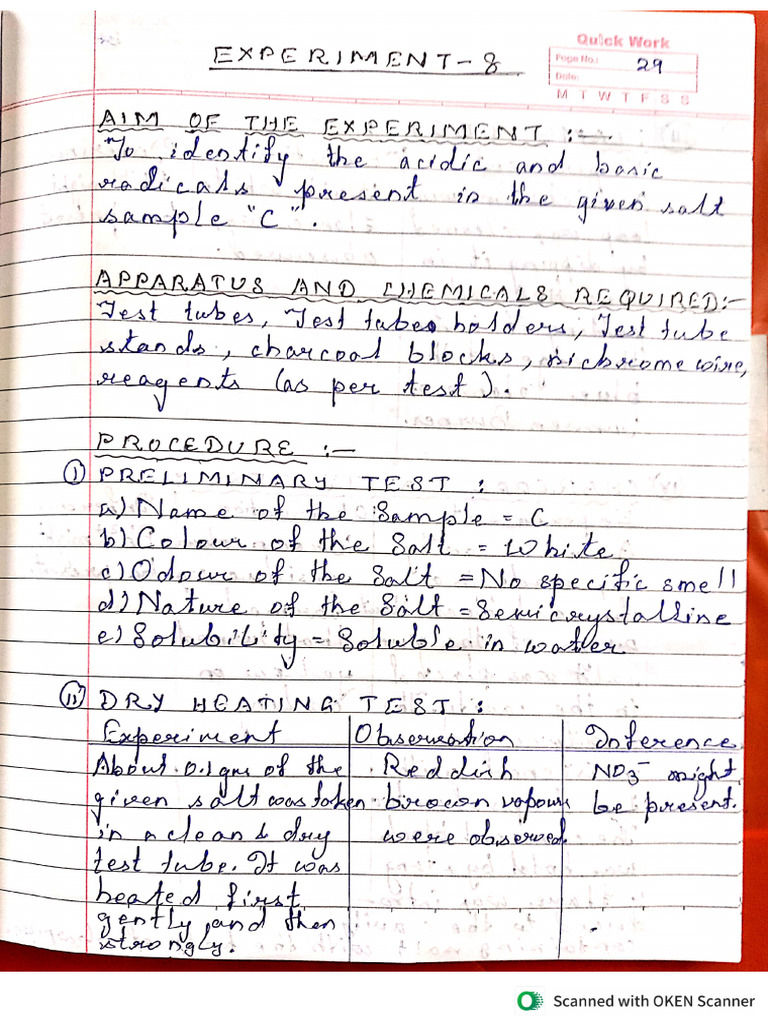 EXPERIMENT-8
Quick Work
Page No.: 29
Date:
M T W T F S S
AIM OF THE EXPERIMENT :-
To identify the acidic and basic
radicals present in the given salt
sample "C".
APPARATUS AND CHEMICALS REQUIRED:-
Test tubes, Test tubes holders, Test tube
stands, charcoal blocks, nichrome wire,
reagents (as per test).
PROCEDURE :-
(i) PRELIMINARY TEST :
a) Name of the Sample = C
b) Colour of the Salt = White
c) Odour of the Salt = No specific smell
d) Nature of the Salt = Semicrystalline
e) Solubility = Soluble in water
(ii) DRY HEATING TEST :
Experiment Observation Inference
About 0.1gm of the Reddish NO3⁻ might
given salt was taken brown vapours be present.
in a clean & dry were observed.
test tube. It was
heated first
gently and then
strongly.
Scanned with OKEN Scanner